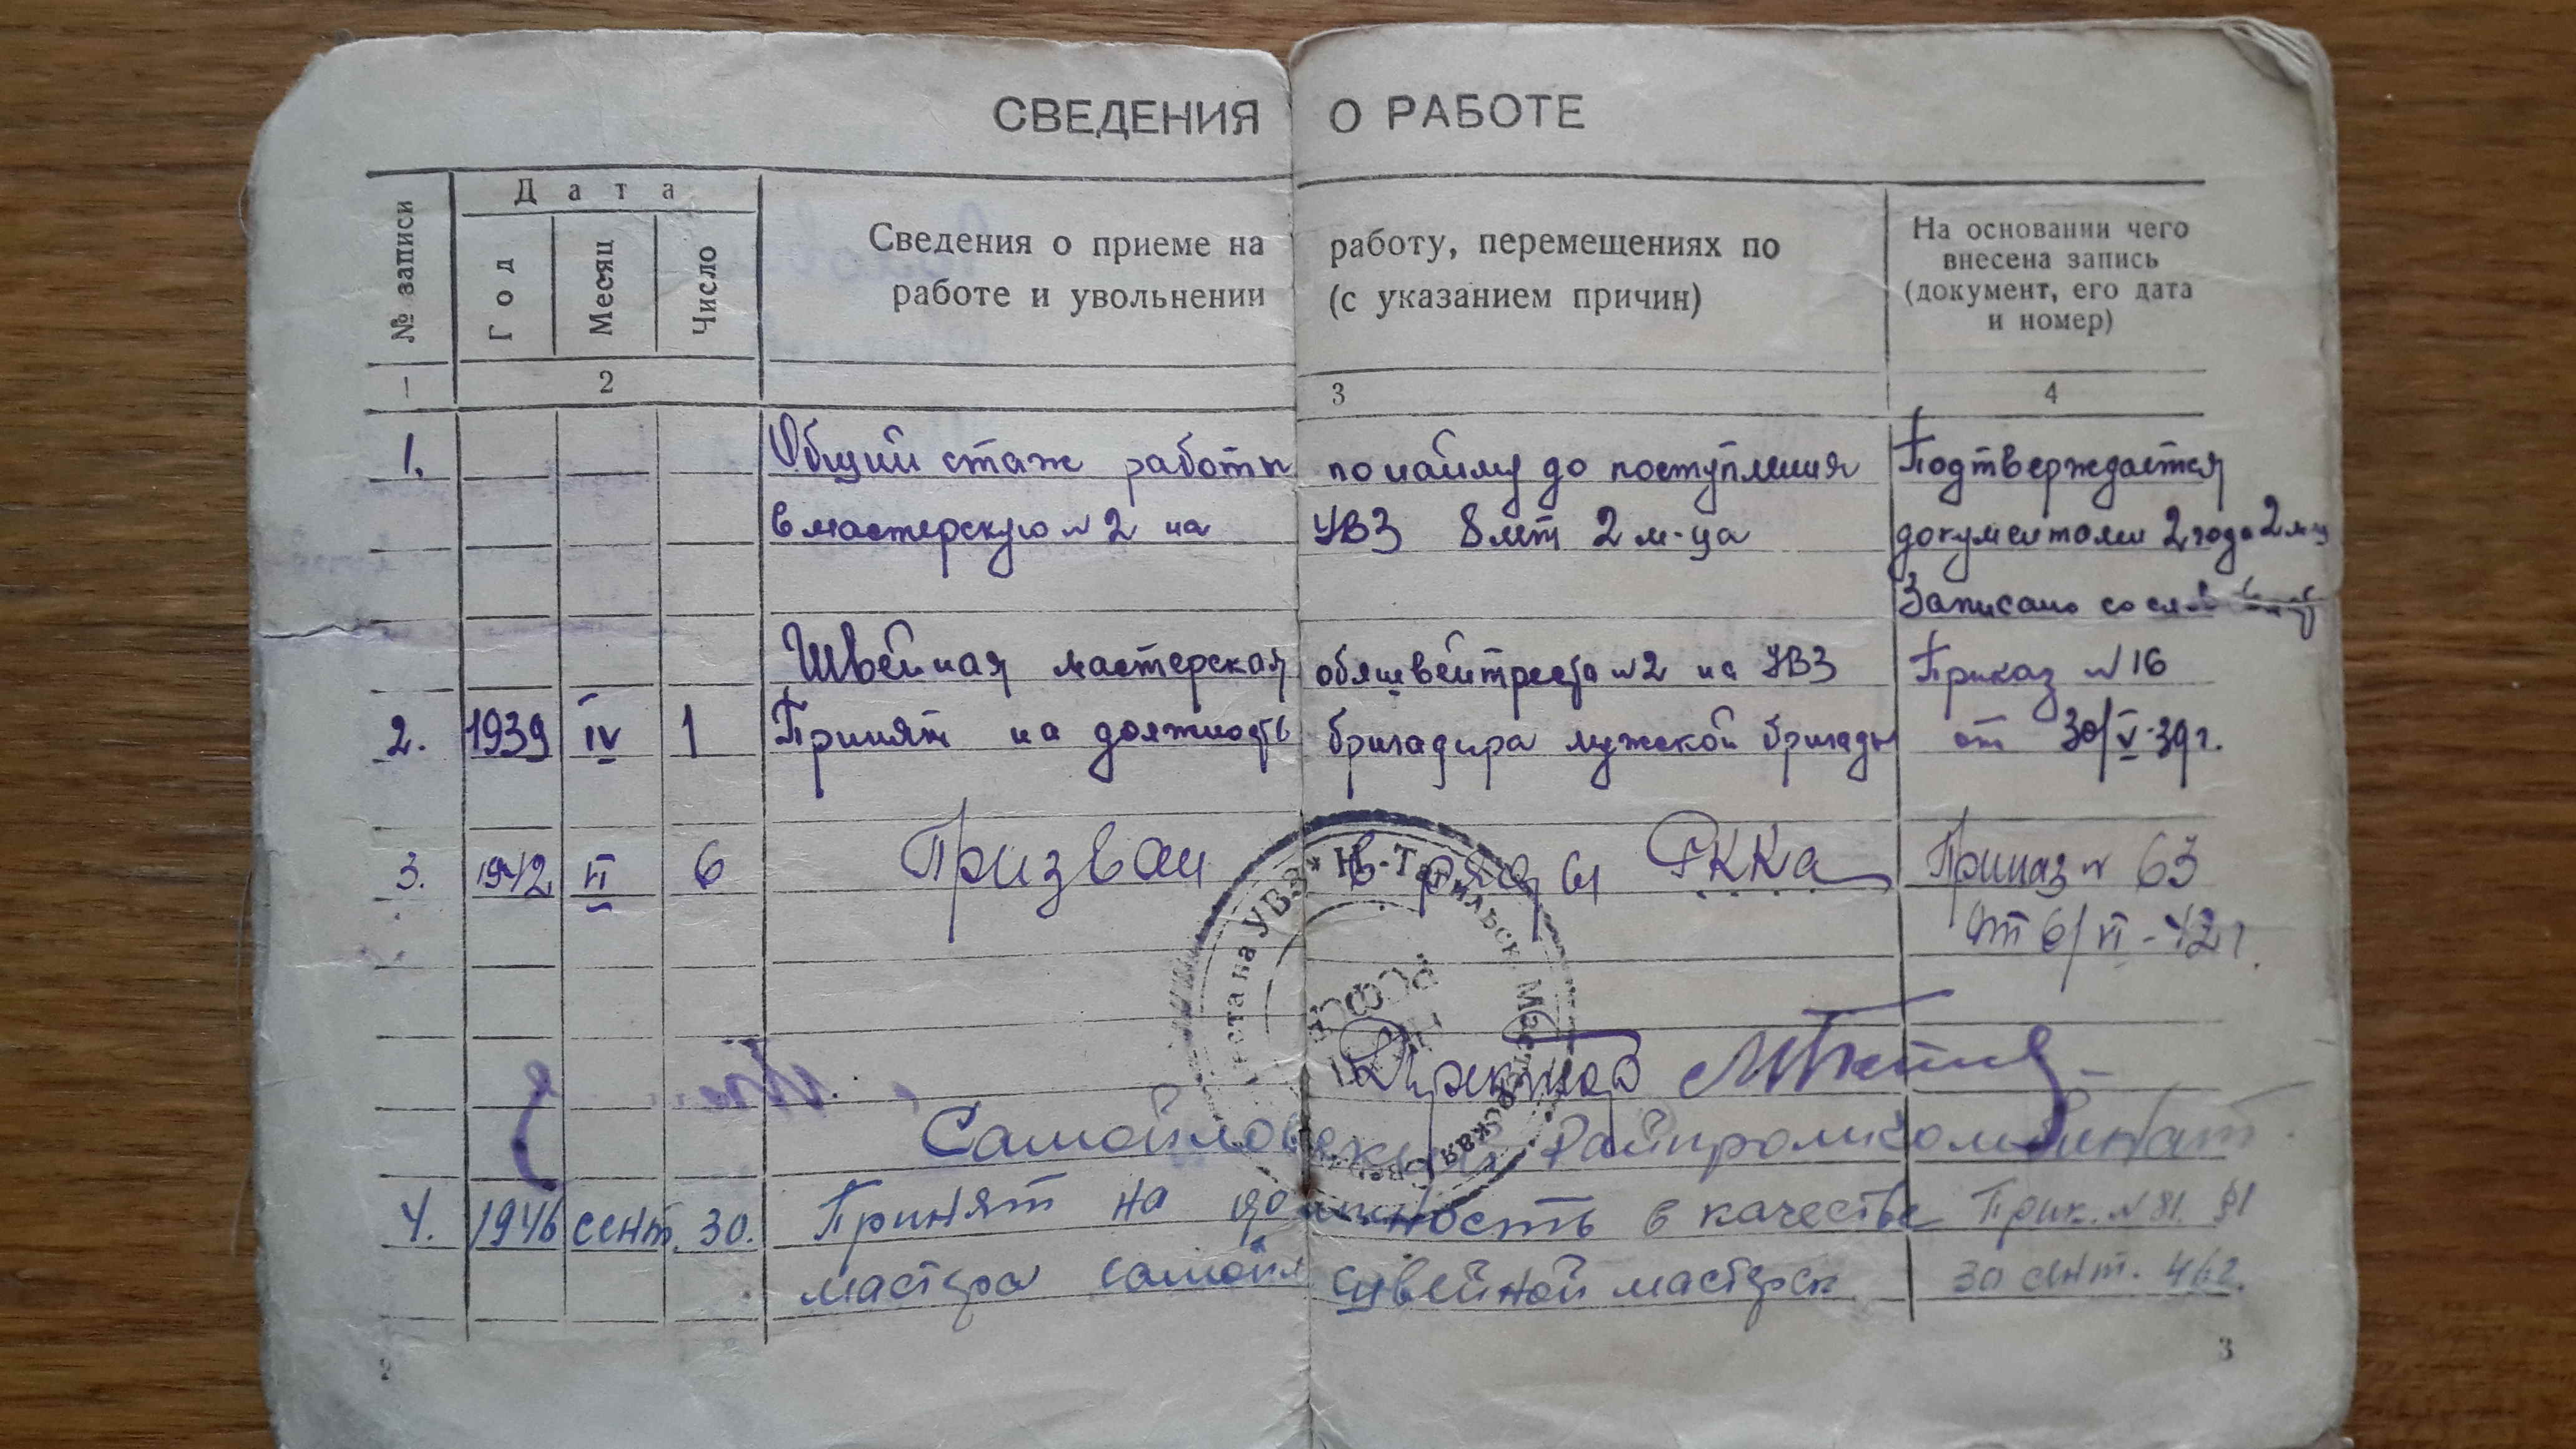 СВЕДЕНИЯ О РАБОТЕ
№ записи
Дата
Год
Месяц
Число
Сведения о приеме на работу, перемещениях по
работе и увольнении (с указанием причин)
На основании чего
внесена запись
(документ, его дата
и номер)
1 2 3 4
1. Общий стаж работы по найму до поступления Подтверждается
в мастерскую №2 на УВЗ 8 лет 2 м-ца документами 2 года 2 м-ца
Записано со слов
Швейная мастерская облшвейтреста №2 на УВЗ Приказ №16
2. 1939 IV 1 Принят на должность бригадира мужской бригады от 30/V-39 г.
3. 1942 VI 6 Призван в ряды РККА Приказ № 63
от 6/VI-42 г.
на УВЗ * Н-Тагильск. Мастерская
РСФСР
Директор
Самойловский Райпромкомбинат.
4. 1946 сент. 30. Принят на должность в качестве Прик. №81. §1
мастера самойл швейной мастерск 30 сент. 46 г.
2
3